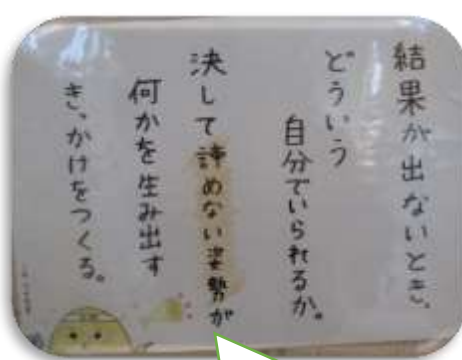 結果が出ないとき、
どういう
自分でいられるか。
決して諦めない姿勢が
何かを生み出す
きっかけをつくる。